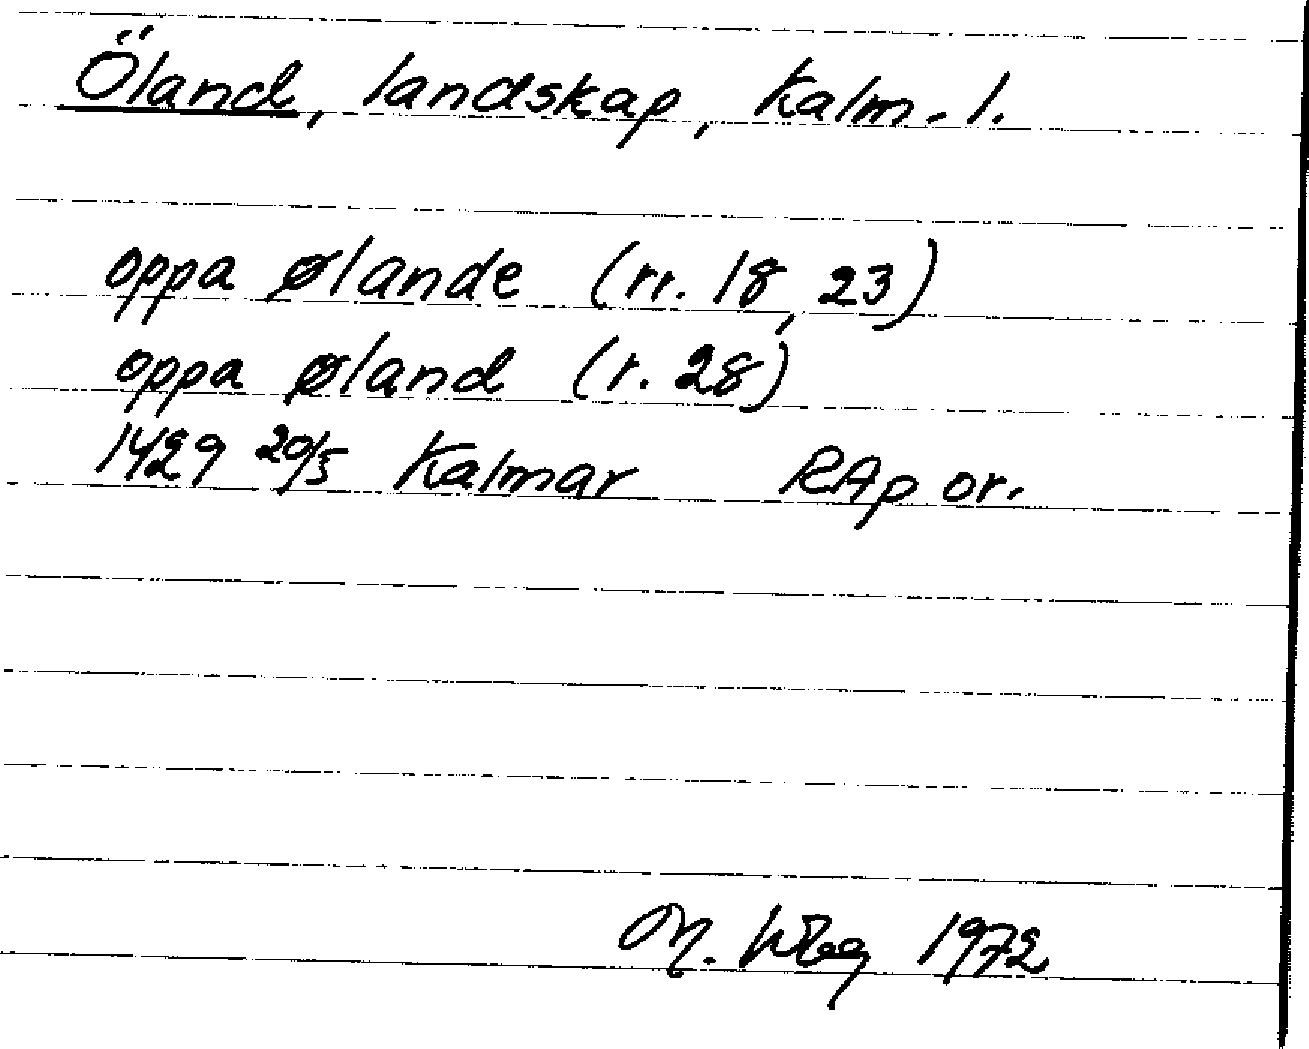 Öland, landskap, Kalm. l.
oppa ølande (rr. 18, 23)
oppa øland (r. 28)
1429 20/5 Kalmar RAp or.
M. 1972